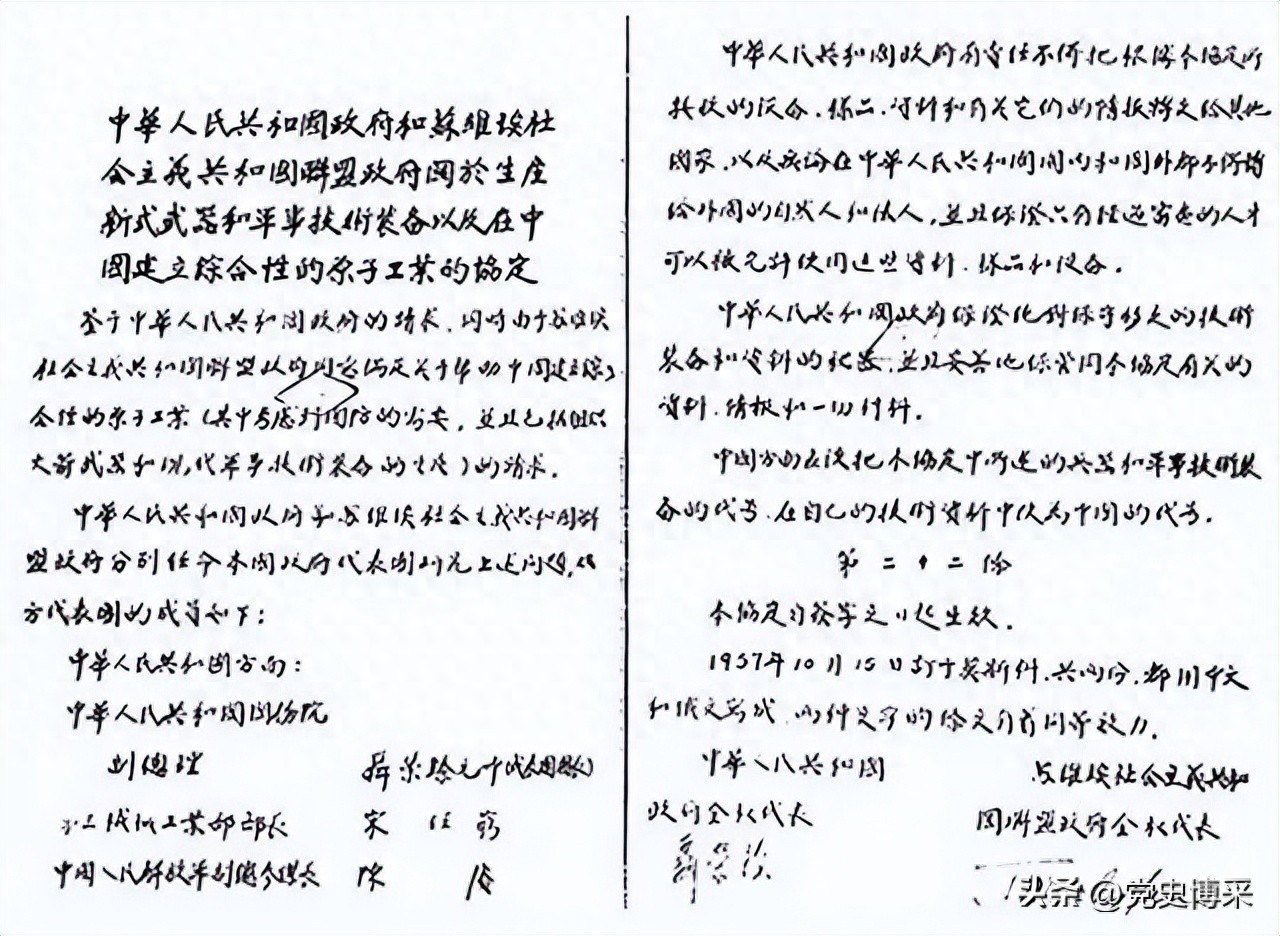 中華人民共和国政府和蘇維埃社
会主義共和国聯盟政府関於生産
新式武器和軍事技術装备以及在中
国建立综合性的原子工業的協定
鉴于中華人民共和国政府的請求,同時由于苏维埃
社会主義共和国聯盟政府同意满足关于帮助中国建立综
合性的原子工業(其中考慮到国防的需要,並且包括組织
火箭武器和现代軍事技術装备的生産)的請求。
中華人民共和国政府和苏维埃社会主義共和国聯
盟政府分别任命本国政府代表团研究上述问题,双
方代表团的成员如下:
中華人民共和国方面:
中華人民共和国国務院
副總理 聶荣臻元帅(代表团团長)
第三機械工業部部長 宋 任 窮
中国人民解放軍副總参謀長 陳 賡
中華人民共和国政府有責任不得把根据本協定所
接收的设备、样品、資料和有关它们的情报轉交给其他
国家,以及無論在中華人民共和国国内和国外都不得轉
给外国的自然人和法人,並且保證只有經过審查的人才
可以被允許使用这些資料、样品和设备。
中華人民共和国政府保證绝对保守移交的技術
装备和資料的秘密,並且妥善地保管同本協定有关的
資料、情报和一切材料。
中国方面应该把本協定中所述的兵器和軍事技術装
备的代号,在自己的技術資料中改为中国的代号。
第 二 十 二 條
本協定自簽字之日起生效。
1957年10月15日訂于莫斯科,共两份,都用中文
和俄文写成,两种文字的條文具有同等效力。
中華人民共和国
政府全权代表
苏维埃社会主義共和
国聯盟政府全权代表
聶荣臻
头条 @党史博采